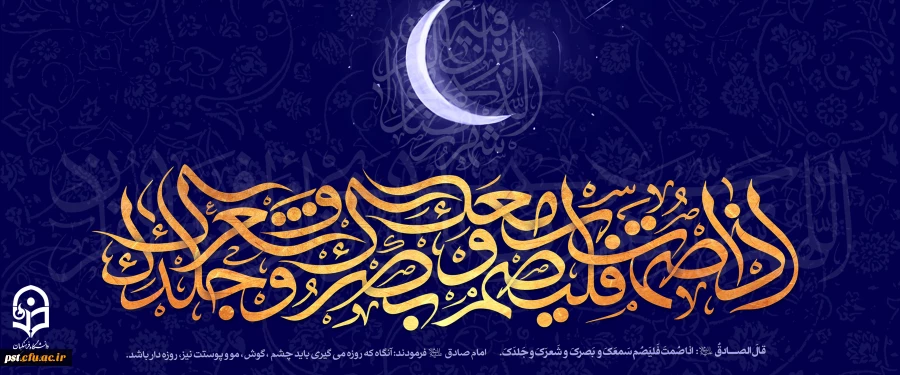 اذا صمت فلیصم سمعک و بصرک و شعرک و جلدک
قال الصادق : اذا صُمتَ فَليَصُم سَمعَکَ و بَصرکَ و شَعرَکَ و جَلدَکَ. امام صادق فرمودند: آنگاه که روزه می گیری باید چشم ، گوش ، مو و پوستت نیز، روزه دار باشد.
دانشگاه فرهنگیان
pst.cfu.ac.ir